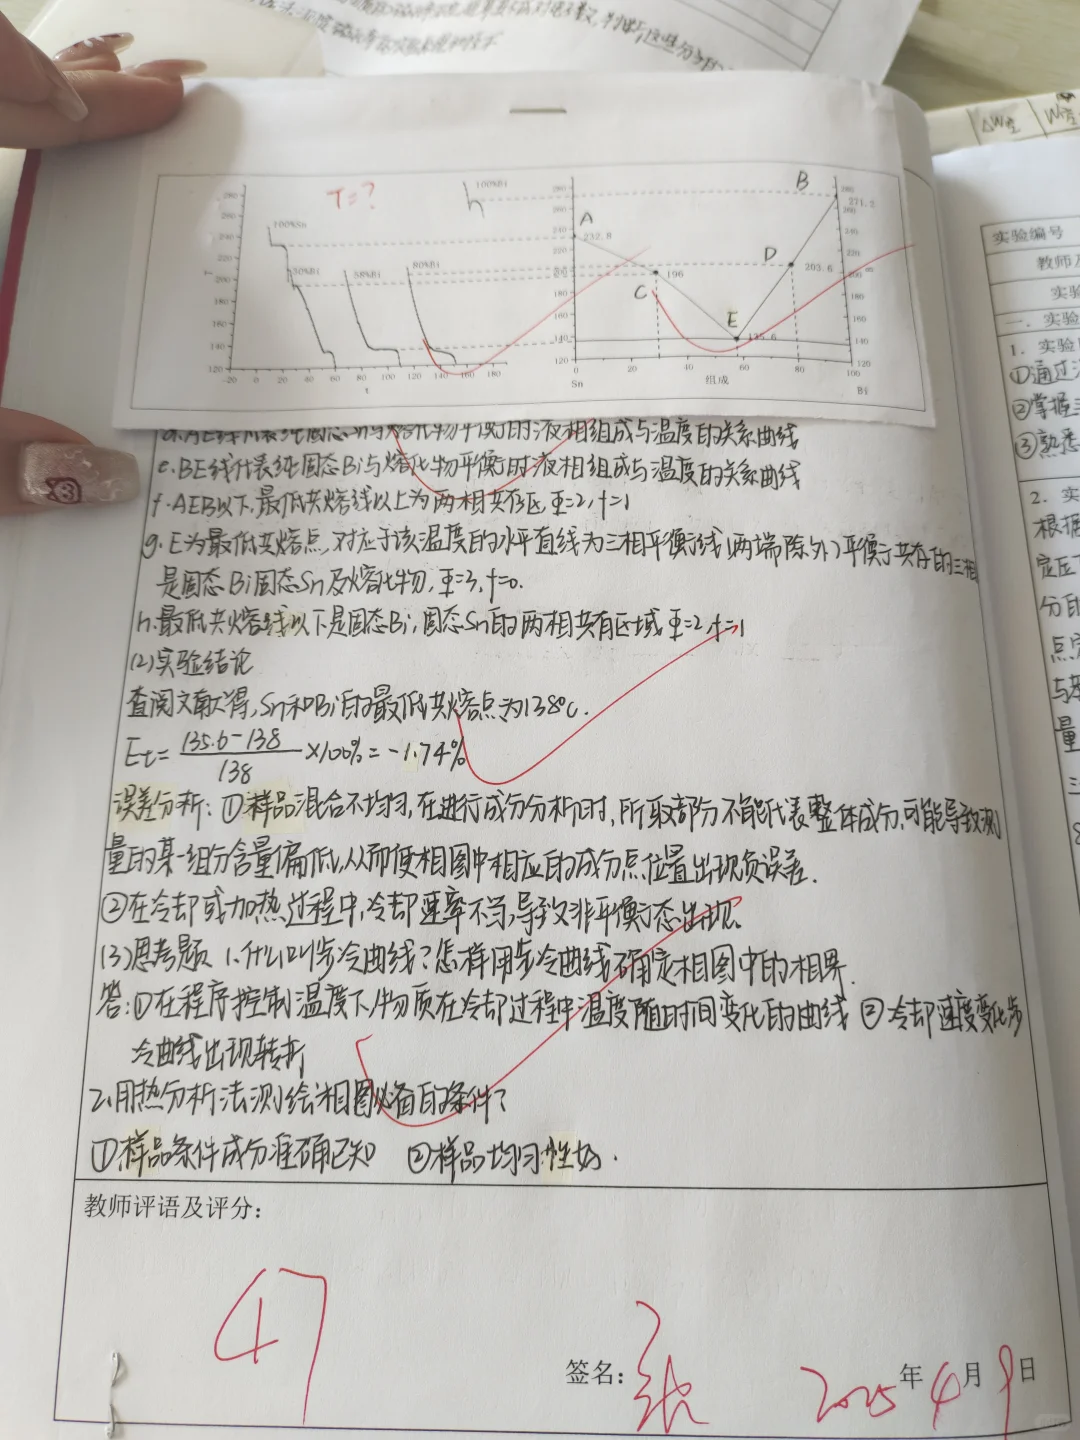 △W空
W空
实验编号
T=?
100%Bi
100%Sn
30%Bi
58%Bi
80%Bi
280
260
240
220
200
180
160
140
120
-20 0 20 40 60 80 100 120 140 160 180
t
A
B
C
D
E
232.8
196
135.6
203.6
271.2
0 20 40 60 80 100
Sn
组成
Bi
e.BE线代表纯固态Bi与熔化物平衡时液相组成与温度的关系曲线
f.AEB以下,最低共熔线以上为两相共存区,Φ=2,f=1
g.E为最低共熔点,对应于该温度的水平直线为三相平衡线(两端除外)平衡于共存的三相
是固态Bi固态Sn及熔化物,Φ=3,f=0.
h.最低共熔线以下是固态Bi,固态Sn的两相共存区域Φ=2,f=1
(2)实验结论
查阅文献得,Sn和Bi的最低共熔点为138℃.
Et= 135.6-138 / 138 ×100%= -1.74%
误差分析:①样品混合不均匀,在进行成分分析时,所取部分不能代表整体成分,可能导致测
量的某一组分含量偏低,从而使相图中相应的成分点位置出现负误差.
②在冷却或加热过程中,冷却速率不匀,导致非平衡态出现.
(3)思考题 1.什么叫步冷曲线?怎样用步冷曲线确定相图中的相界.
答:①在程序控制温度下,物质在冷却过程中温度随时间变化的曲线 ②冷却速度变化步
冷曲线出现转折
2.用热分析法测绘相图必备的条件?
①样品条件成分准确已知 ②样品均匀性好.
教师评语及评分:
47
签名:
2025年4月9日
一.实验
1.实验
①通过
②掌握
③熟悉
2.实
根据
定应
分的
点
与
量